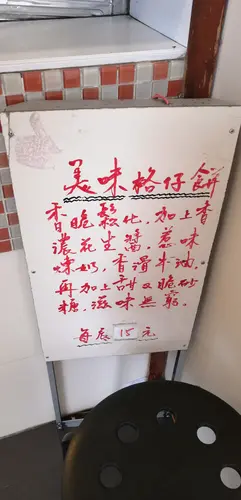 美味格仔餅
香脆鬆化，加上香
濃花生醬，惹味
煉奶，香滑牛油，
再加上甜又脆砂
糖，滋味無窮。
每底 15 元